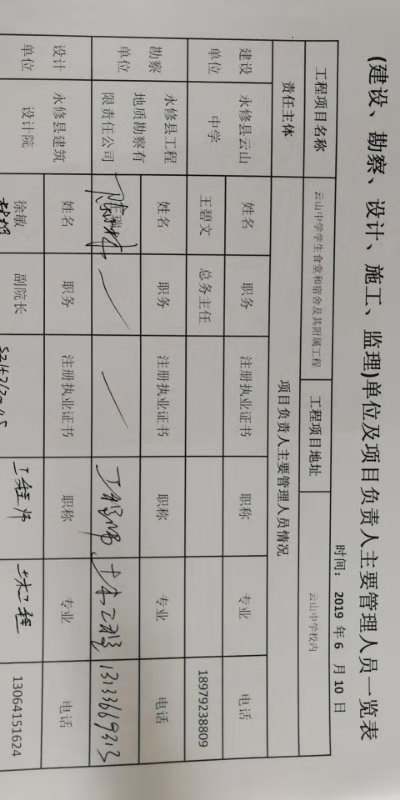 (建设、勘察、设计、施工、监理)单位及项目负责人主要管理人员一览表
时间: 2019 年 6 月 10 日
工程项目名称 云山中学学生食堂和宿舍及其附属工程 工程项目地址 云山中学校内
责任主体 项目负责人主要管理人员情况
建设单位 永修县云山中学 姓名 职务 注册执业证书 职称 专业 电话
王碧文 总务主任 18979238809
勘察单位 永修县工程地质勘察有限责任公司 姓名 职务 注册执业证书 职称 专业 电话
工程师 土木工程 13133669313
设计单位 永修县建筑设计院 姓名 职务 注册执业证书 职称 专业 电话
徐敏 副院长 工程师 土木工程 13064151624